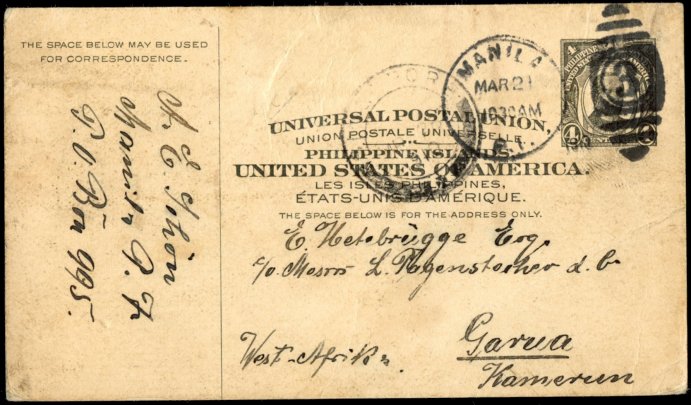 THE SPACE BELOW MAY BE USED
FOR CORRESPONDENCE.
Manila P. I.
P. O. Box 995.
MANILA
MAR 21
1030AM
P.I.
4
4
UNIVERSAL POSTAL UNION,
UNION POSTALE UNIVERSELLE.
PHILIPPINE ISLANDS,
UNITED STATES OF AMERICA.
LES ISLES PHILIPPINES,
ÉTATS-UNIS D'AMÉRIQUE.
THE SPACE BELOW IS FOR THE ADDRESS ONLY.
E. Hetebrügge Esq.
c/o Messrs L. Pagenstecher & Co
Garua
West-Afrika
Kamerun